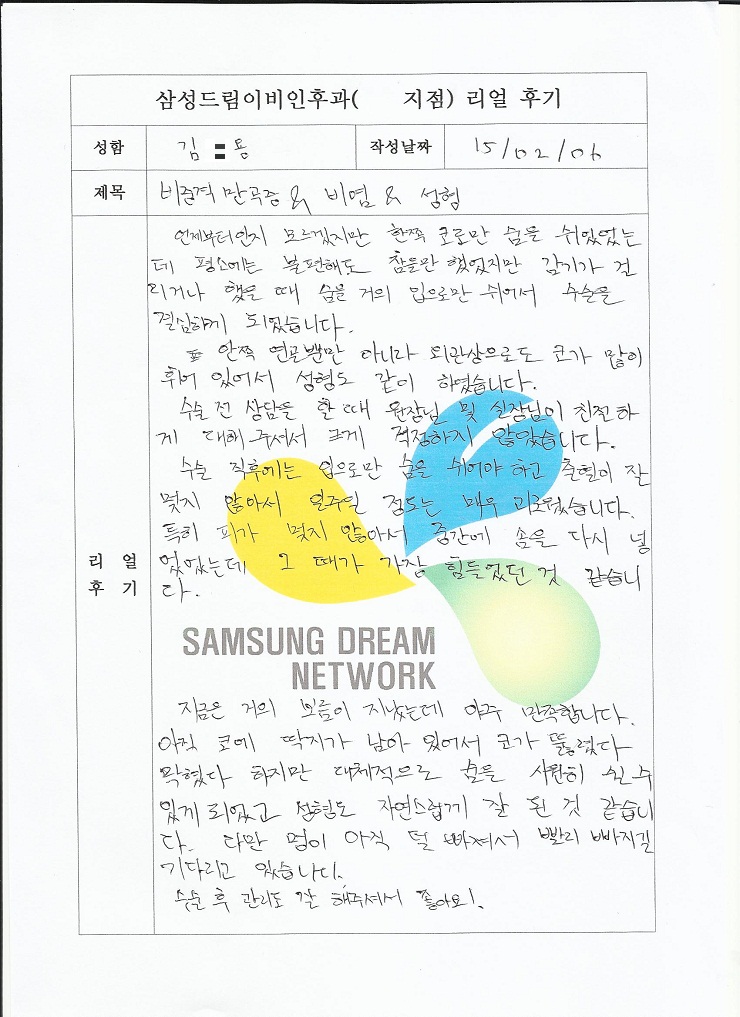 삼성드림이비인후과( 지점) 리얼 후기
성함 김 용 작성날짜 15/02/06
제목 비중격만곡증 & 비염 & 성형
언제부터인지 모르겠지만 한쪽 코로만 숨을 쉬었었는
데 평소에는 불편해도 참을만 했었지만 감기가 걸
리거나 했을 때 숨을 거의 입으로만 쉬어서 수술을
결심하게 되었습니다.
안쪽 연골뿐만 아니라 외관상으로도 코가 많이
휘어 있어서 성형도 같이 하였습니다.
수술 전 상담을 할 때 원장님 및 실장님이 친절하
게 대해 주셔서 크게 걱정하지 않았습니다.
수술 직후에는 입으로만 숨을 쉬어야 하고 출혈이 잘
멎지 않아서 일주일 정도는 매우 괴로웠습니다.
특히 피가 멎지 않아서 중간에 솜을 다시 넣
었었는데 그 때가 가장 힘들었던 것 같습니
다.
리얼
후기
SAMSUNG DREAM
NETWORK
지금은 거의 보름이 지났는데 아주 만족합니다.
아직 코에 딱지가 남아 있어서 코가 뚫렸다
막혔다 하지만 대체적으로 숨을 시원히 쉴 수
있게 되었고 성형도 자연스럽게 잘 된 것 같습니
다. 다만 멍이 아직 덜 빠져서 빨리 빠지길
기다리고 있습니다.
수술 후 관리도 잘 해주셔서 좋아요!.